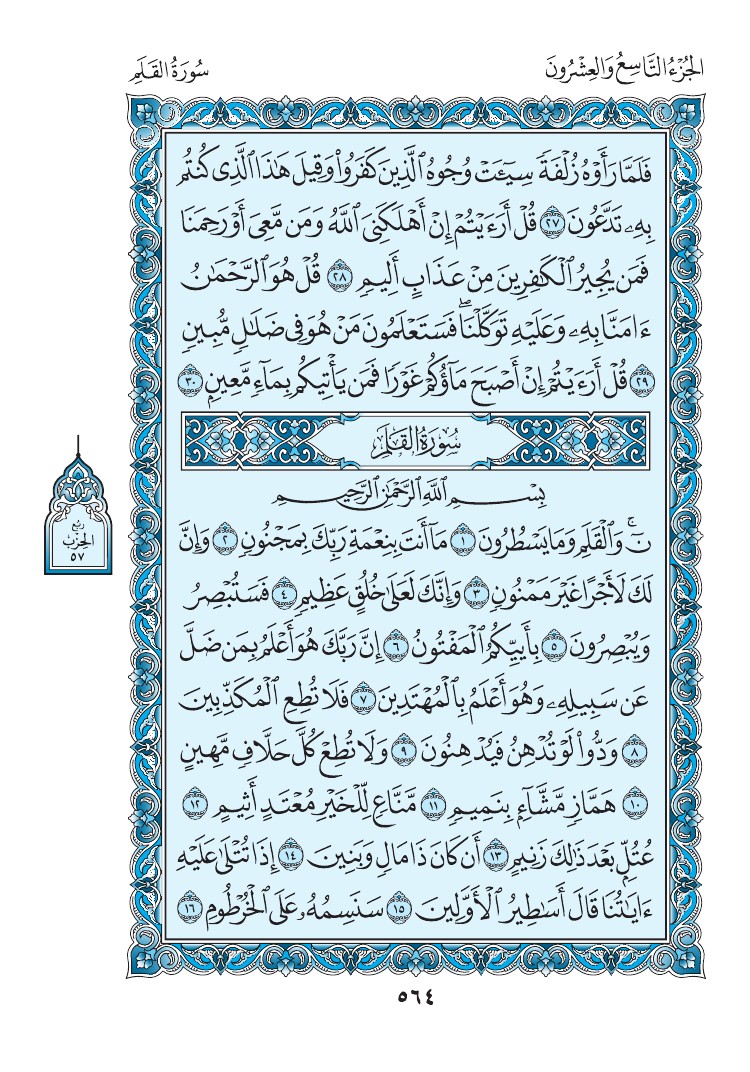 الجُزْءُ التَّاسِعُ وَالعِشْرُونَ
سُورَةُ القَلَمِ
فَلَمَّا رَأَوْهُ زُلْفَةً سِيٓـَٔتْ وُجُوهُ ٱلَّذِينَ كَفَرُوا۟ وَقِيلَ هَٰذَا ٱلَّذِى كُنتُم
بِهِۦ تَدَّعُونَ ٢٧ قُلْ أَرَءَيْتُمْ إِنْ أَهْلَكَنِىَ ٱللَّهُ وَمَن مَّعِىَ أَوْ رَحِمَنَا
فَمَن يُجِيرُ ٱلْكَٰفِرِينَ مِنْ عَذَابٍ أَلِيمٍ ٢٨ قُلْ هُوَ ٱلرَّحْمَٰنُ
ءَامَنَّا بِهِۦ وَعَلَيْهِ تَوَكَّلْنَا ۖ فَسَتَعْلَمُونَ مَنْ هُوَ فِى ضَلَٰلٍ مُّبِينٍ
٢٩ قُلْ أَرَءَيْتُمْ إِنْ أَصْبَحَ مَآؤُكُمْ غَوْرًا فَمَن يَأْتِيكُم بِمَآءٍ مَّعِينٍ ٣٠
سُورَةُ القَلَمِ
بِسْمِ ٱللَّهِ ٱلرَّحْمَٰنِ ٱلرَّحِيمِ
نٓ ۚ وَٱلْقَلَمِ وَمَا يَسْطُرُونَ ١ مَآ أَنتَ بِنِعْمَةِ رَبِّكَ بِمَجْنُونٍ ٢ وَإِنَّ
لَكَ لَأَجْرًا غَيْرَ مَمْنُونٍ ٣ وَإِنَّكَ لَعَلَىٰ خُلُقٍ عَظِيمٍ ٤ فَسَتُبْصِرُ
وَيُبْصِرُونَ ٥ بِأَييِّكُمُ ٱلْمَفْتُونُ ٦ إِنَّ رَبَّكَ هُوَ أَعْلَمُ بِمَن ضَلَّ
عَن سَبِيلِهِۦ وَهُوَ أَعْلَمُ بِٱلْمُهْتَدِينَ ٧ فَلَا تُطِعِ ٱلْمُكَذِّبِينَ
٨ وَدُّوا۟ لَوْ تُدْهِنُ فَيُدْهِنُونَ ٩ وَلَا تُطِعْ كُلَّ حَلَّافٍ مَّهِينٍ
١٠ هَمَّازٍ مَّشَّآءٍۭ بِنَمِيمٍ ١١ مَّنَّاعٍ لِّلْخَيْرِ مُعْتَدٍ أَثِيمٍ ١٢
عُتُلٍّۭ بَعْدَ ذَٰلِكَ زَنِيمٍ ١٣ أَن كَانَ ذَا مَالٍ وَبَنِينَ ١٤ إِذَا تُتْلَىٰ عَلَيْهِ
ءَايَٰتُنَا قَالَ أَسَٰطِيرُ ٱلْأَوَّلِينَ ١٥ سَنَسِمُهُۥ عَلَى ٱلْخُرْطُومِ ١٦
ربع
الحزب
٥٧
٥٦٤